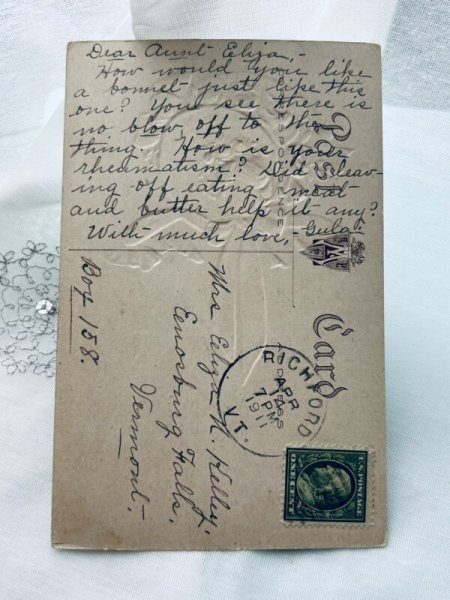 Dear Aunt Eliza,-
How would you like
a bonnet just like this
one? You see there is
no blow off to the
thing. How is your
rheumatism? Did leav-
ing off eating meat
and butter help it any?
With much love,- Gula.
Post Card
CORRESPONDENCE
ADDRESS
Mrs Eliza N. Kelley,
Eenosburg Falls,
Vermont.
Box 158.
RICHFORD
APR
14
7 PM
1911
VT.
U.S. POSTAGE
ONE CENT